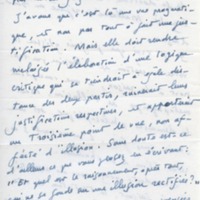 J'avoue que c'est là une vue pragmatique
que, et non pas tout à fait une jus-
tification. Mais elle doit rendre
l'élaboration d'une logique
critique qui se tiendrait à égale dis-
tance des deux postes,
justifications respectives, et apportant
un Troisième point de vue, non af-
d'illusion. Sans doute est-ce
d'ailleurs ce que vous pensez en écrivant:
"Et quel est le raisonnement, après tout,
qui ne se fonde sur une illusion rectifiée?"